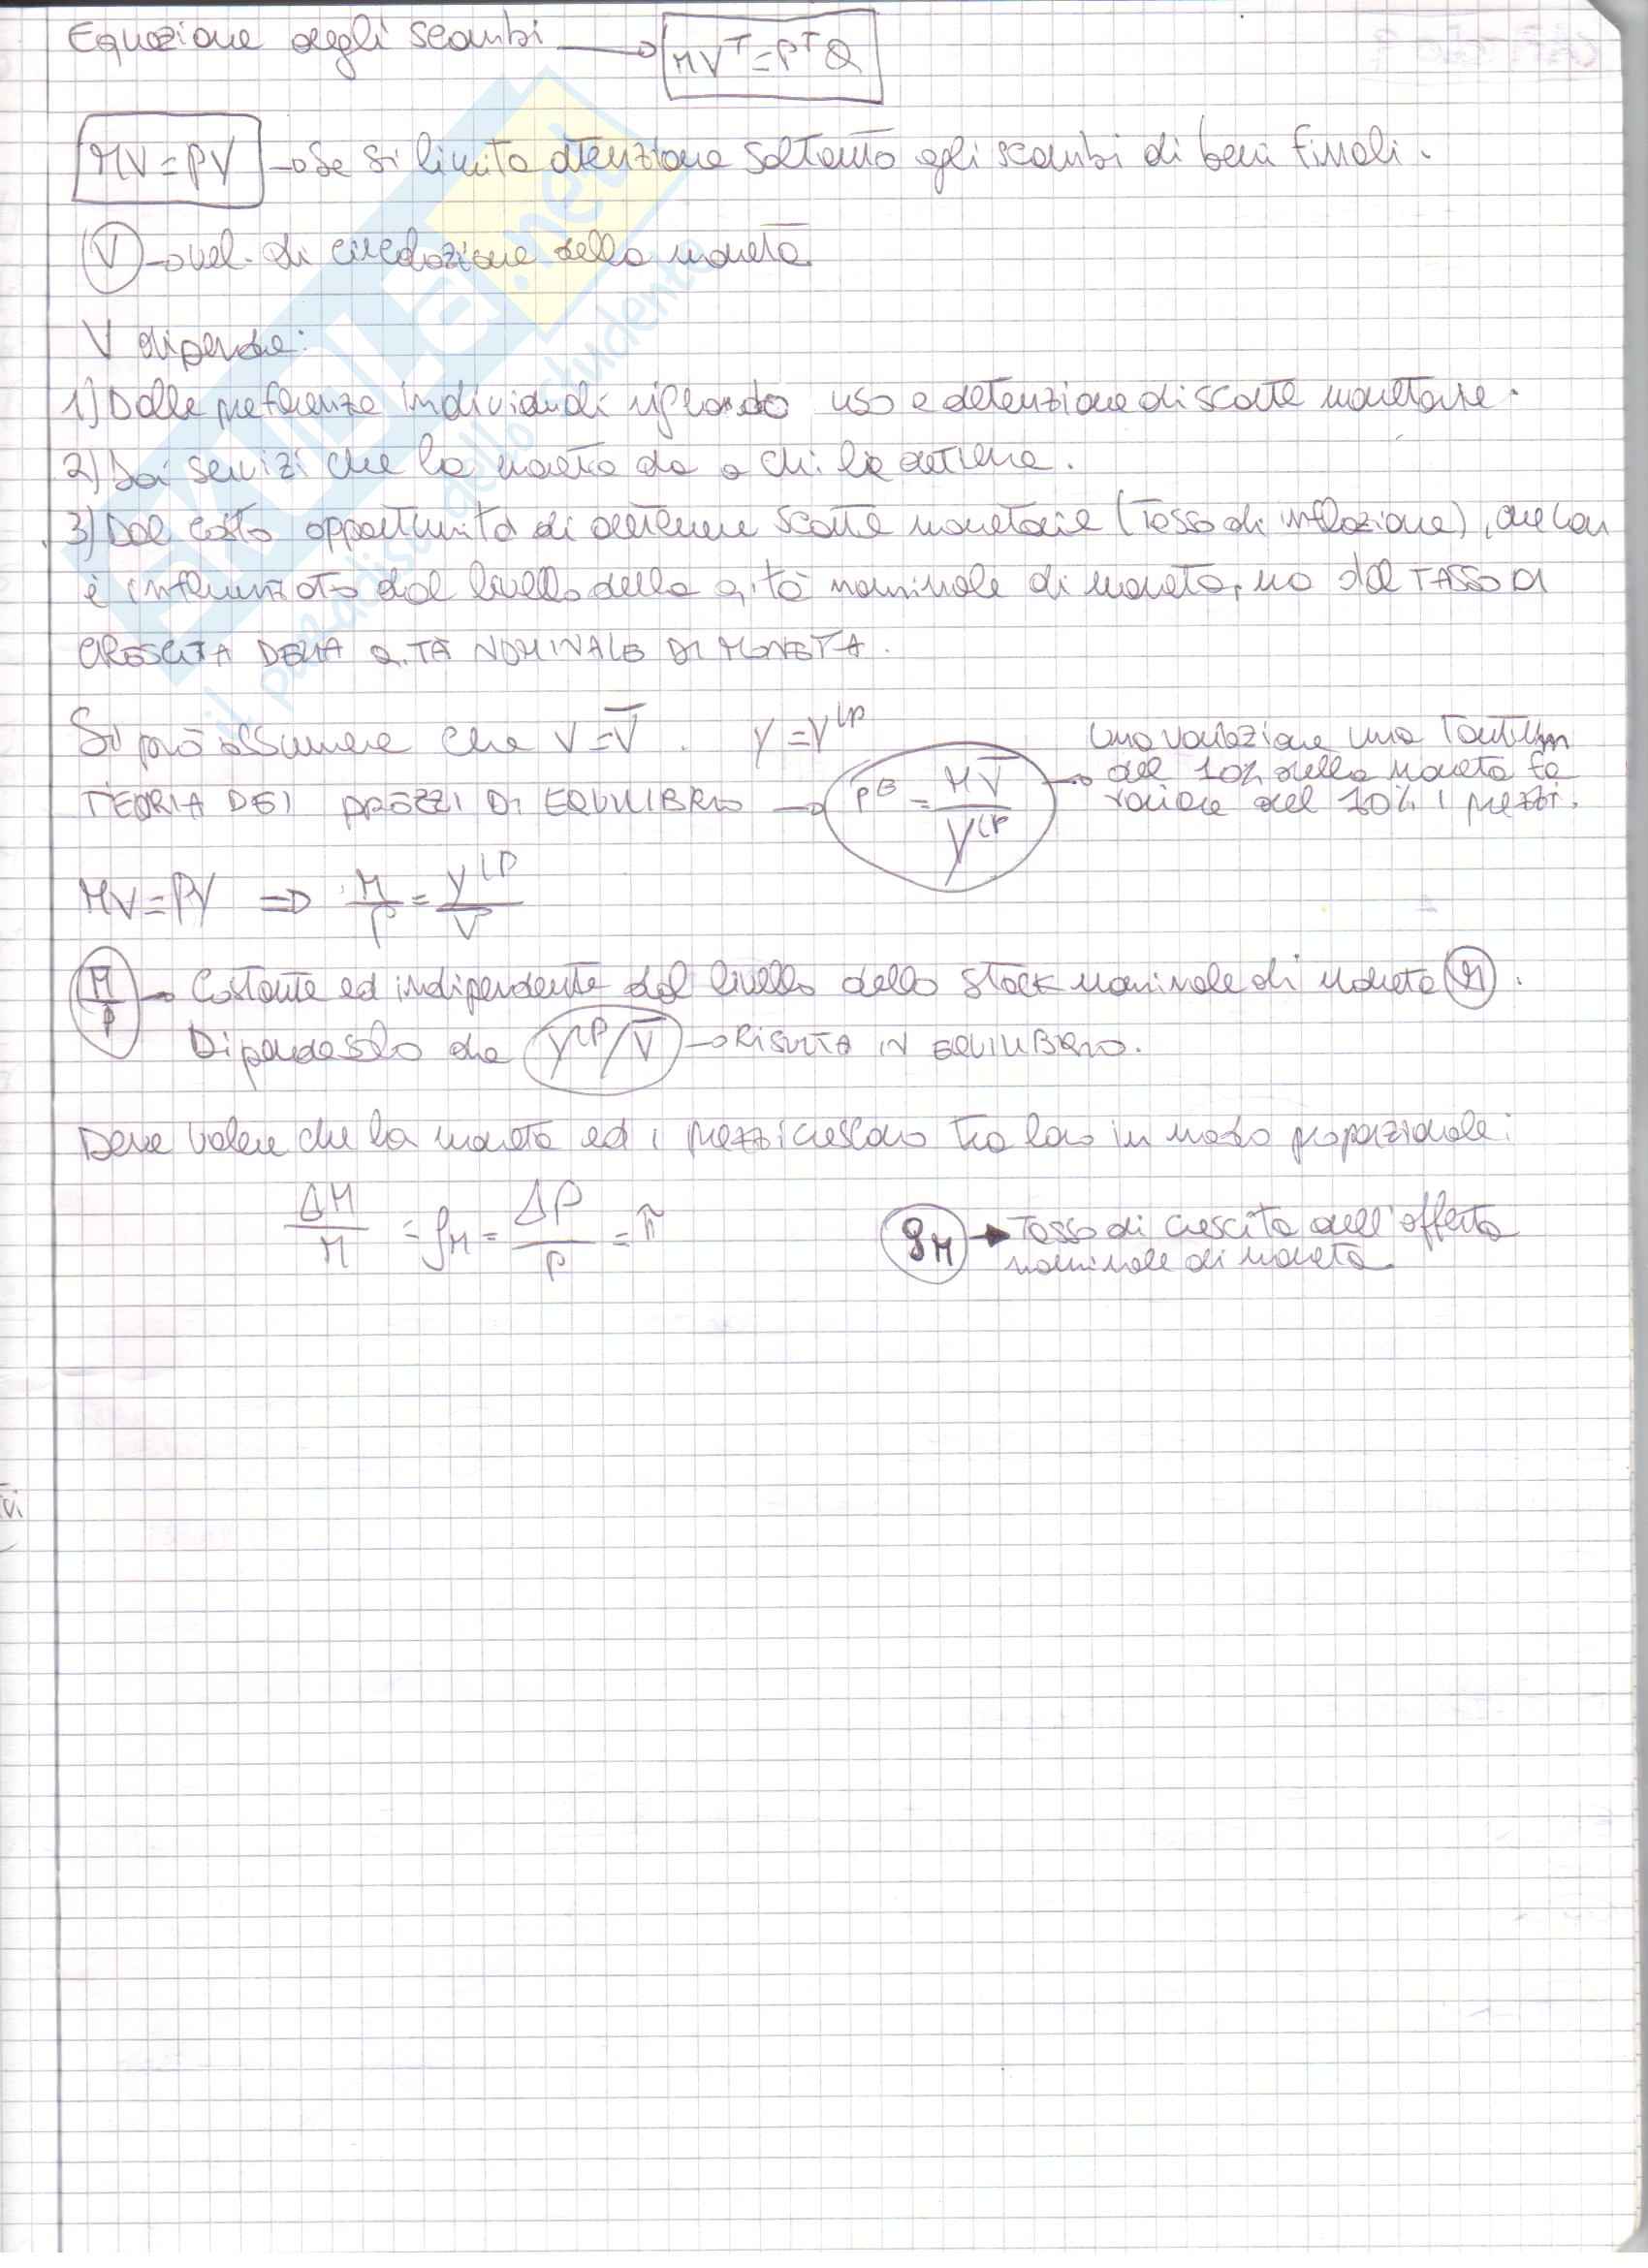 Equazione degli scambi → MVᵀ = PᵀQ
MV = PY → Se si limita attenzione soltanto agli scambi di beni finali.
V → vel. di circolazione della moneta
V dipende:
1) Dalle preferenze individuali riguardo uso e detenzione di scorte monetarie.
2) Dai servizi che la moneta da a chi la detiene.
3) Dal costo opportunità di detenere scorte monetarie (Tasso di inflazione), che non
è influenzato dal livello della q.tà nominale di moneta, ma dal TASSO DI
CRESCITA DELLA Q.TÀ NOMINALE DI MONETA.
Si può assumere che V = V̅ . Y = Yᴸᴾ
TEORIA DEI PREZZI DI EQUILIBRIO → Pᴱ = MV̅ / Yᴸᴾ → Una variazione una Tantum
del 10% della moneta fa
variare del 10% i prezzi.
MV = PY ⇒ M/P = Yᴸᴾ/V
M/P → Costante ed indipendente dal livello dello stock nominale di moneta M .
Dipende solo da Yᴸᴾ/V̅ → RISULTA IN EQUILIBRIO.
Deve valere che la moneta ed i prezzi crescano tra loro in modo proporzionale:
ΔM/M = gM = ΔP/P = π gM → Tasso di crescita dell'offerta
nominale di moneta
SKUOLA.net
il paradiso dello studente
vi